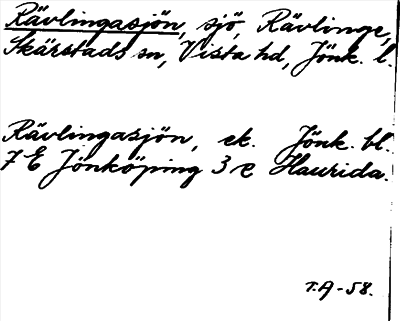 Rävlingasjön, sjö, Rävlinge,
Skärstads sn, Vista hd, Jönk. l.
Rävlingasjön, ek. Jönk. bl.
7 E Jönköping 3 e Haurida.
T.A-58.